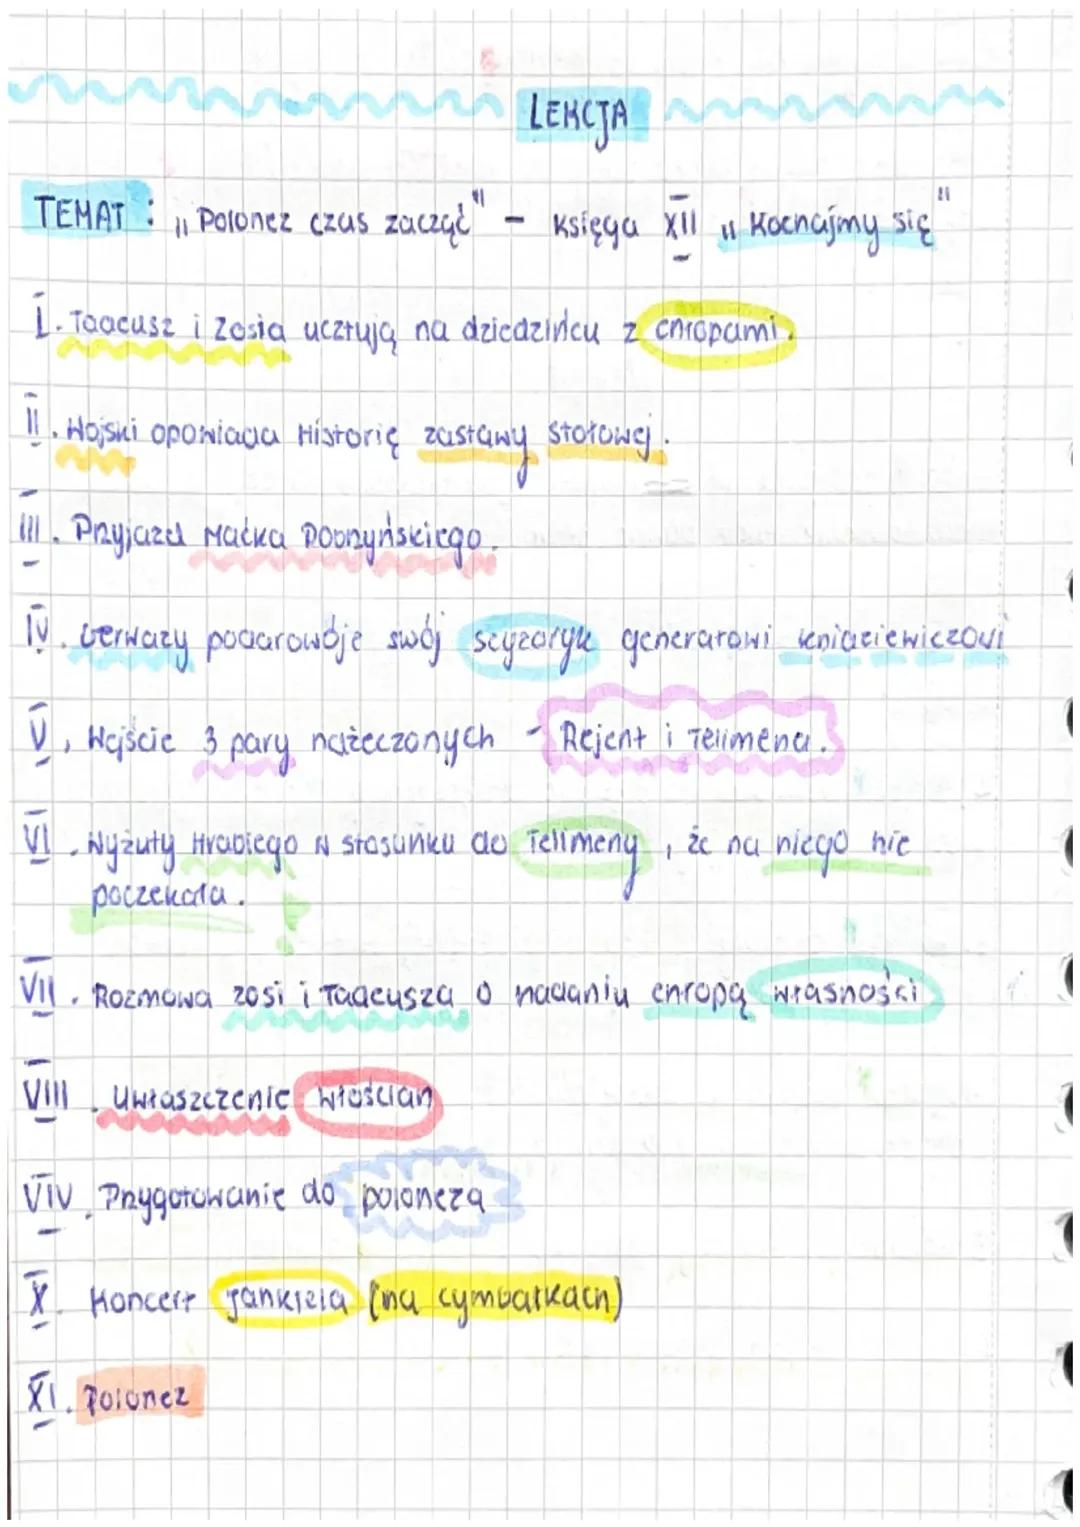 LEKCJA
TEMAT : „Polonez czas zacząć" – księga XII „Kochajmy się"
I. Tadeusz i Zosia ucztują na dziedzińcu z chłopami.
II. Wojski opowiada Historię zastawy stołowej.
III. Przyjazd Maćka Dobrzyńskiego.
IV. Gerwazy podarowóje swój scyzoryk generałowi Kniaziewiczowi
V. Wejście 3 pary nażeczonych - Rejent i Telimena.
VI. Wyżuty Hrabiego w stosunku do Telimeny, że na niego nie
poczekała.
VII. Rozmowa Zosi i Tadeusza o nadaniu chłopą własności
VIII. Uwłaszczenie włościan
VIV. Przygotowanie do poloneza
X. Koncert Jankiela (na cymbałkach)
XI. Polonez